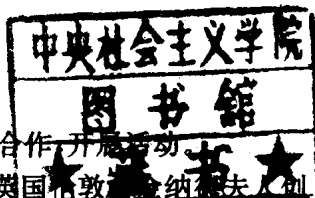 中央社会主义学院
图书馆
合作开展活动。
★藏书★
英国伦敦 纳德夫人创